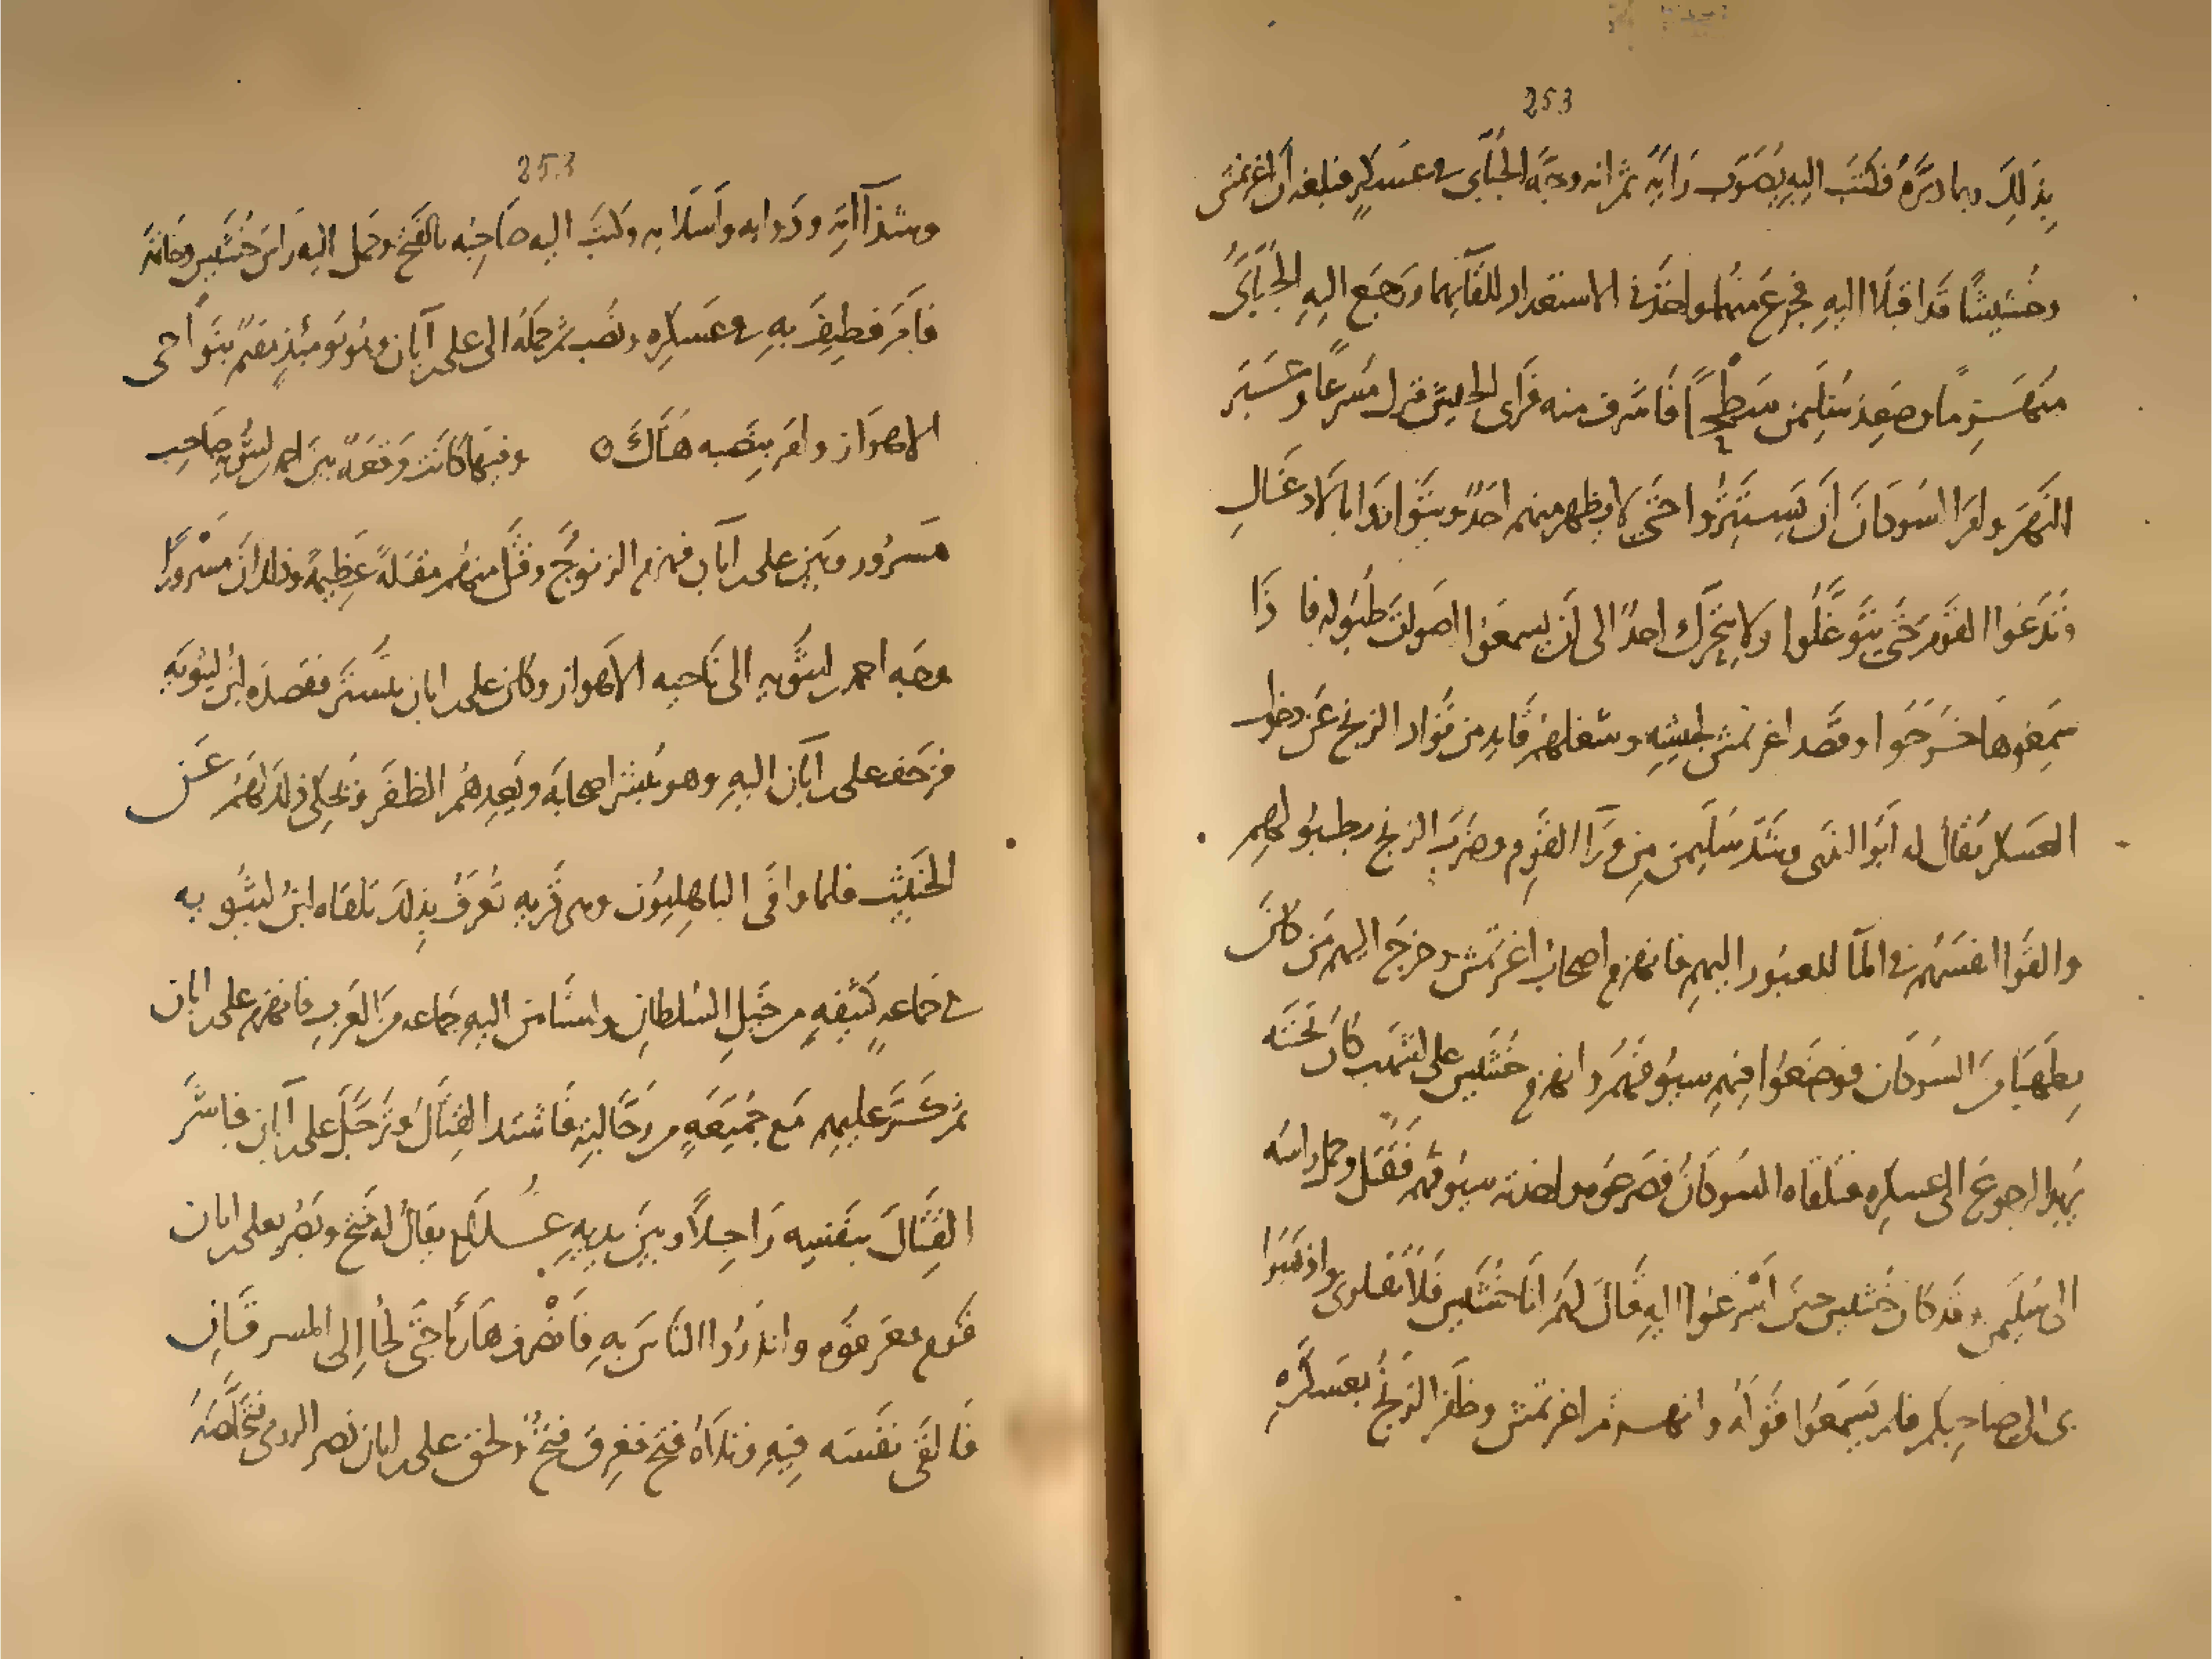 253
بذلك وبما دبره فكتب اليه يصوب رايه ثم انه وجه الجبّاى فى عسكر فبلغه ان اغرتمش
وخشيشا قد اقبلا اليه فجزع منهما واخذ فى الاستعداد للقائهما ورجع اليه الجبّاى
منهزما وصعد سليمن سطحا فاشرف منه فراى الجيش فنزل مسرعا وعبر
النهر وامر السودان ان يستتروا حتى لا يظهر منهم احد ويتواروا بالادغال
وتدعوا القوم حتى يتوغلوا ولا يتحرك احد الى ان يسمعوا اصوات طبوله فاذا
سمعوها خرجوا وقصد اغرتمش لجيشه وشغلهم قايد من قواد الزنج عن دخول
العسكر يقال له ابو الندى وشد سليمن من ورا القوم وضرب الزنج بطبولهم
والقوا انفسهم فى الما للعبور اليهم فانهزم اصحاب اغرتمش وخرج اليهم من كان
بطهثا من السودان فوضعوا فيهم سيوفهم وانهزم خشيش على اشهب كان تحته
يريد الرجوع الى عسكره فتلقاه السودان فصرعوه واخذته سيوفهم فقتل وحمل راسه
الى سليمن وقد كان خشيش حين اسرعوا اليه قال لهم انا خشيش فلا تقتلونى واذهبوا
بى الى صاحبكم فلم يسمعوا قوله وانهزم اغرتمش وظفر الزنج بعسكره
253
وشذاآته ودوابه واسلابه وكتب اليه صاحبه بالفتح وحمل اليه راس خشيش وخاتمه
فامر فطيف به فى عسكره ونصب ثم حمله الى على بن آبان وهو يومئذ مقيم بنواحى
الاهواز وامر بنصبه هناك ٥ وفيها كانت وقعة بين احمد بن ليثويه صاحب
مسرور وبين على بن آبان فهزم الزنوج وقتل منهم مقتلة عظيمة وذلك ان مسرورا
وجه احمد بن ليثويه الى ناحيه الاهواز وكان على بن ابان بتستر فقصده ابن ليثويه
فزحف على بن ابان اليه وهو يبشر اصحابه ويعدهم الظفر ويحكى ذلك لهم عن
الخبيث فلما وافى الباهليون وهى قريه تعرف بذلك تلقاه ابن ليثويه
فى جماعه كثيفه من خيل السلطان واستامن اليه جماعه من العرب فانهزم على بن ابان
ثم كر عليهم مع جميعه من رجالته فاشتد القتال وترجل على بن آبان فباشر
القتال بنفسه راجلا وبين يديه غلام يقال له فتح وبصر بعلى بن ابان
قوم فعرفوه وانذروا الناس به فانصرف هاربا حتى لجا الى المسرقان
فالقى نفسه فيه وتلاه فتح فغرق فتح ولحق على بن ابان نصر الرومى فتخلصه